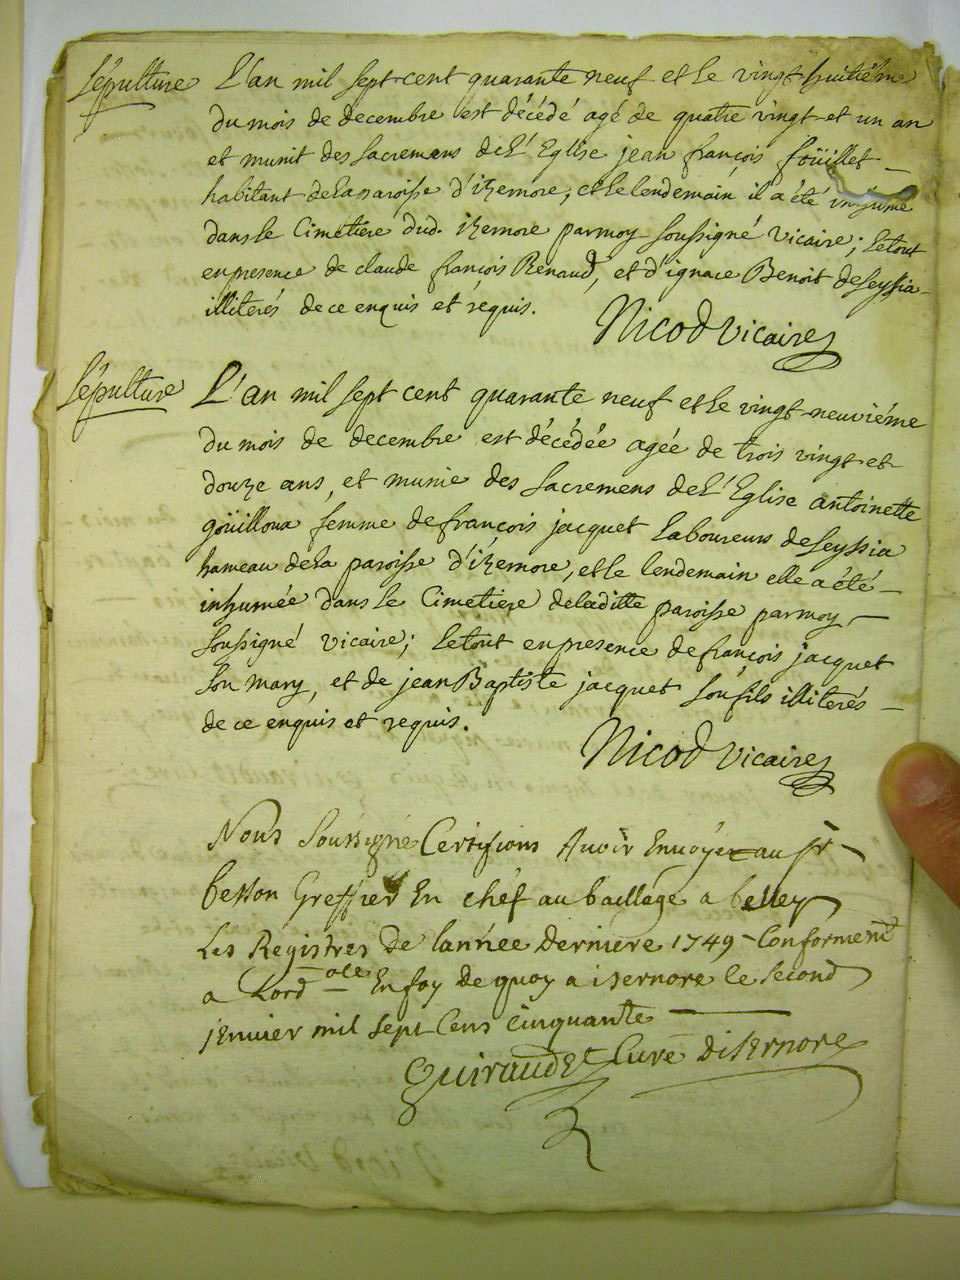 Sépulture L'an mil sept cent quarante neuf et le vingt huitiéme
du mois de decembre est décédé agé de quatre vingt et un an
et munit des sacremens de L'Eglise jean françois foüillet
habitant de la paroisse d'izernore, et le lendemain il a été inhumé
dans le Cimetiere dud. izernore par moy soussigné vicaire; le tout
en presence de claude françois Renaud, et d'ignace Benoit de seyssia
illiterés de ce enquis et réquis.
Nicod vicaire
Sépulture L'an mil sept cent quarante neuf et le vingt neuviéme
du mois de decembre est décédée agée de trois vingt et
douze ans, et munie des sacremens de L'Eglise antoinette
goüilloux femme de françois jacquet laboureur de seyssia
hameau de la paroisse d'izernore, et le lendemain elle a été
inhumée dans le Cimetiere de laditte paroisse par moy
soussigné vicaire; le tout en presence de françois jacquet
son mary, et de jean Baptiste jacquet son fils illiterés
de ce enquis et requis.
Nicod vicaire
Nous soussigné Certifions Avoir Envoyéz au sr
besson Greffier En chéf au baillage a belley
Les Régistres de lannée derniere 1749 Conforment
a Lord ce En foy de quoy a izernore le second
jenvier mil sept Cens cinquante
Guiraudet Curé dizernore